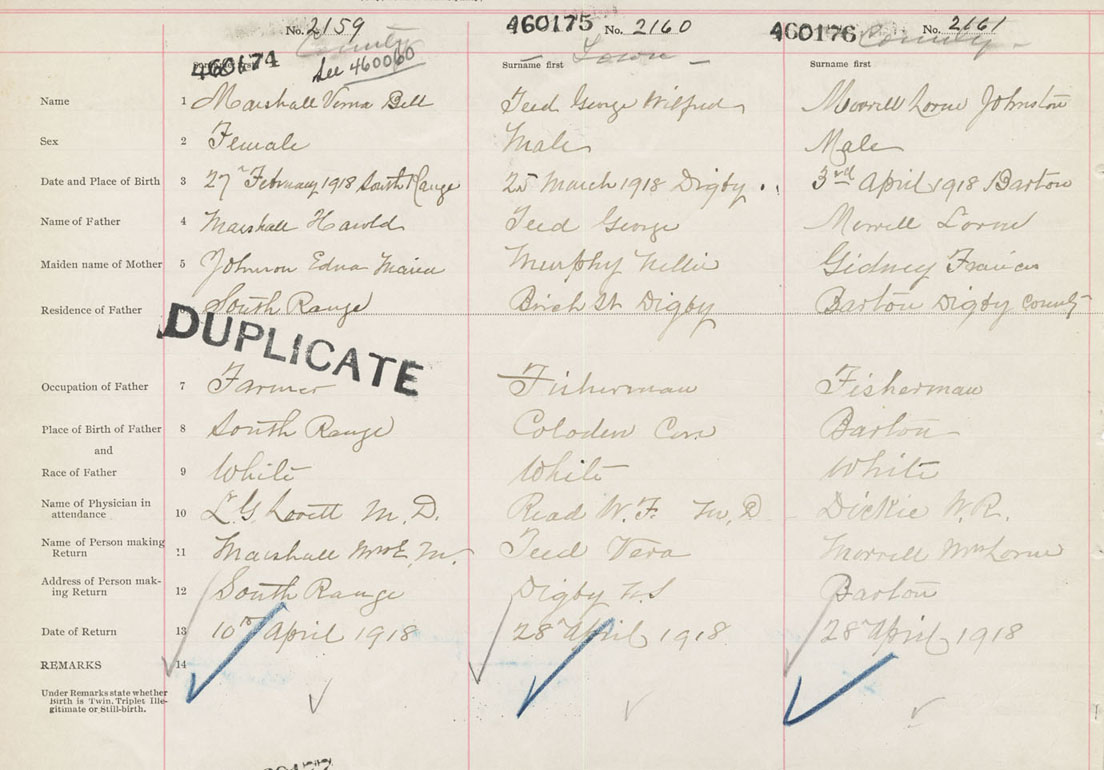 No. 2159
460175 No. 2160
460176 No. 2161
460174 County
See 460060
Town
County
Surname first
Surname first
Name 1 Marshall Verna Bell Teed George Wilfred Morrell Lorne Johnston
Sex 2 Female Male Male
Date and Place of Birth 3 27th February 1918 South Range 25 March 1918 Digby 3rd April 1918 Barton
Name of Father 4 Marshall Harold Teed George Morrell Lorne
Maiden name of Mother 5 Johnson Edna Murphy Nellie Gidney Frances
Residence of Father South Range Birch St Digby Barton Digby County
DUPLICATE
Occupation of Father 7 Farmer Fisherman Fisherman
Place of Birth of Father 8 South Range Coloden Cove Barton
and
Race of Father 9 White White White
Name of Physician in
attendance 10 L. G. Lovett M. D. Read W. F. M. D Dickie W. R.
Name of Person making
Return 11 Marshall Mrs E. M. Teed Vera Morrell Mrs Lorne
Address of Person mak-
ing Return 12 South Range Digby N.S Barton
Date of Return 13 10th April 1918 28 April 1918 28 April 1918
REMARKS 14
Under Remarks state whether
Birth is Twin, Triplet Ille-
gitimate or Still-birth.